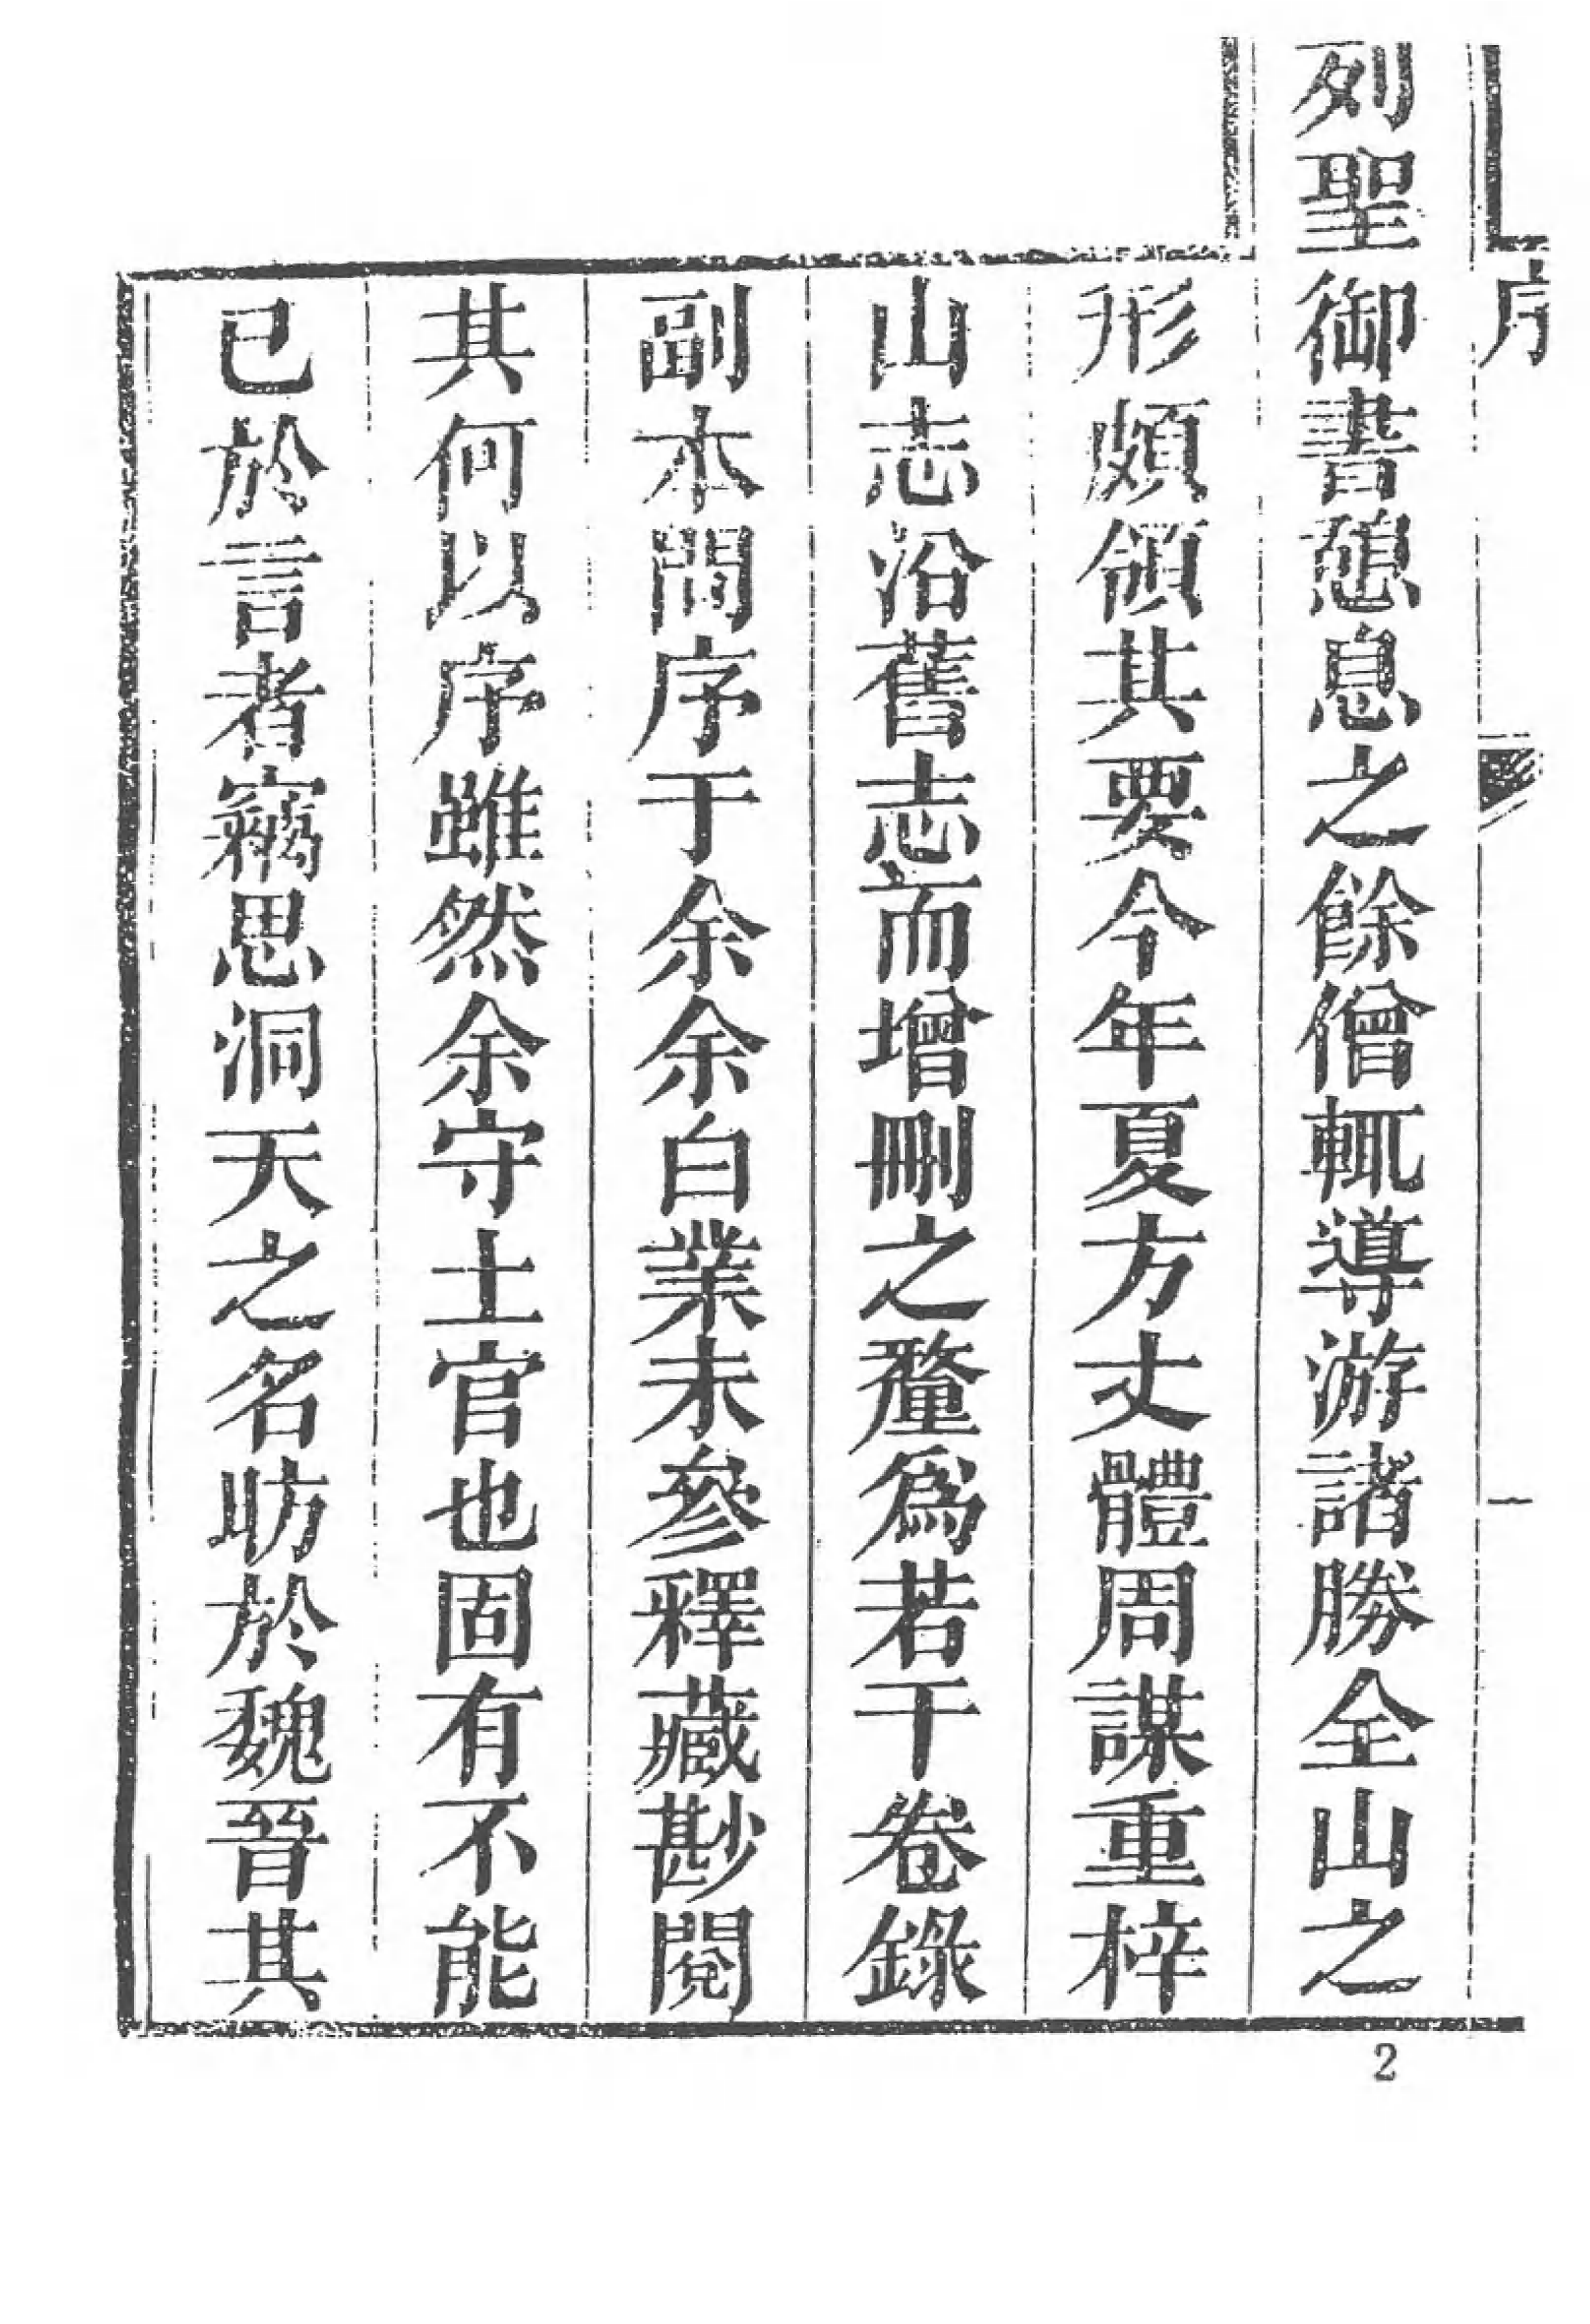 序
一
列聖御書憩息之餘僧輒導游諸勝全山之
形頗領其要今年夏方丈體周謀重梓
山志沿舊志而增刪之釐爲若干卷錄
副本問序于余余白業未參釋藏尠閱
其何以序雖然余守土官也固有不能
已於言者竊思洞天之名昉於魏晉其
2